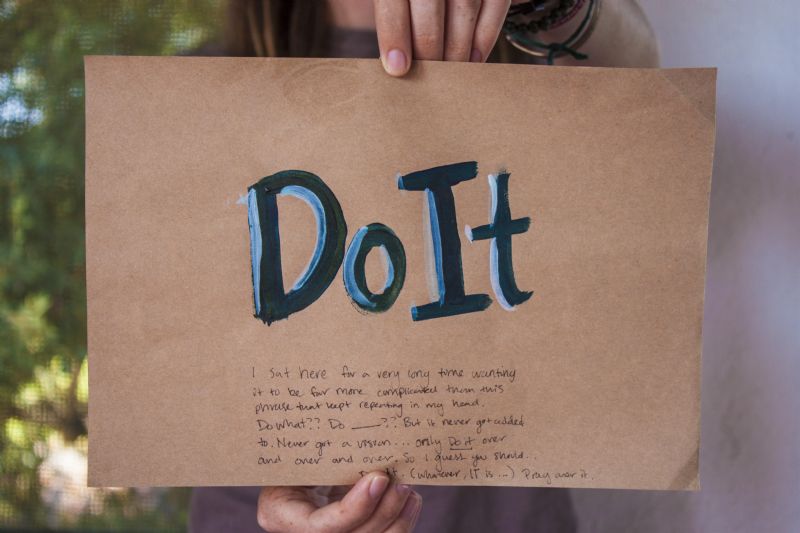 Do It
I sat here for a very long time wanting
it to be far more complicated than this
phrase that kept repeating in my head.
Do what?? Do ___?? But it never got added
to. Never got a vision... only Do it over
and over and over. So I guess you should..
It. (whatever, IT is...) Pray over it.